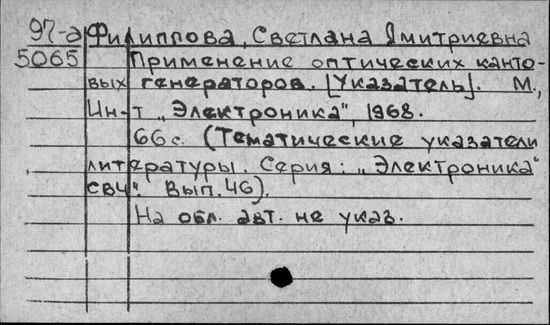 97-а Филиппова, Светлана Дмитриевна
5065 Применение оптических канто-
вых генераторов. [Указатель]. М.,
Ин-т „Электроника", 1968.
66 с. (Тематические указатели
литературы. Серия: „Электроника"
СВЧ". Вып. 46).
На обл. авт. не указ.